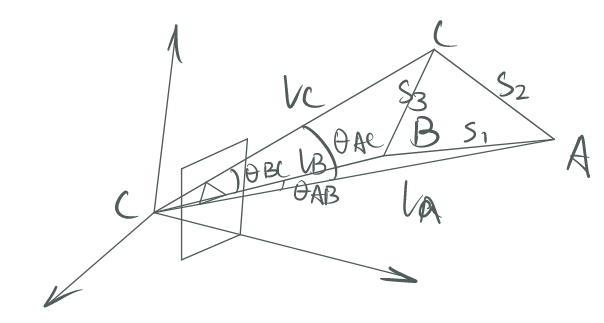 C
VC
S3
S2
θAC
B
S1
A
θBC
VB
θAB
VA
C